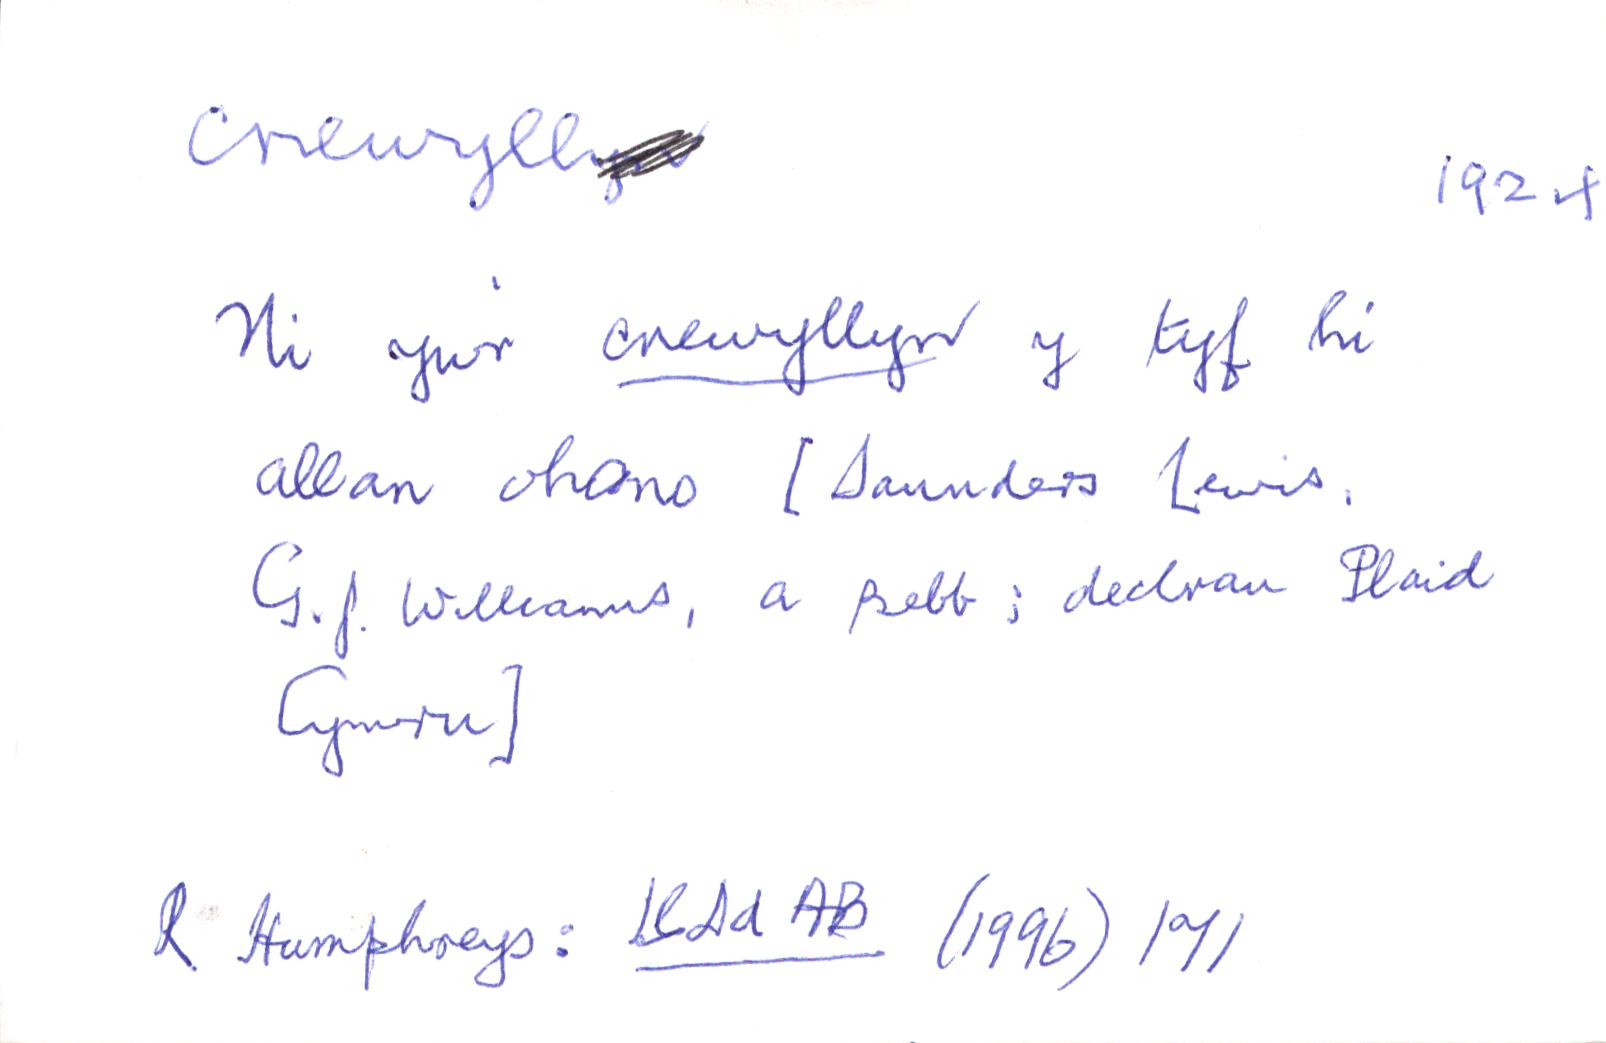 cnewyllyn
1924
Ni yw'r cnewyllyn y tyf hi
allan ohono [Saunders Lewis,
G.J. Williams, a Bebb; dechrau Plaid
Cymru]
R Humphreys: AB (1996) 171